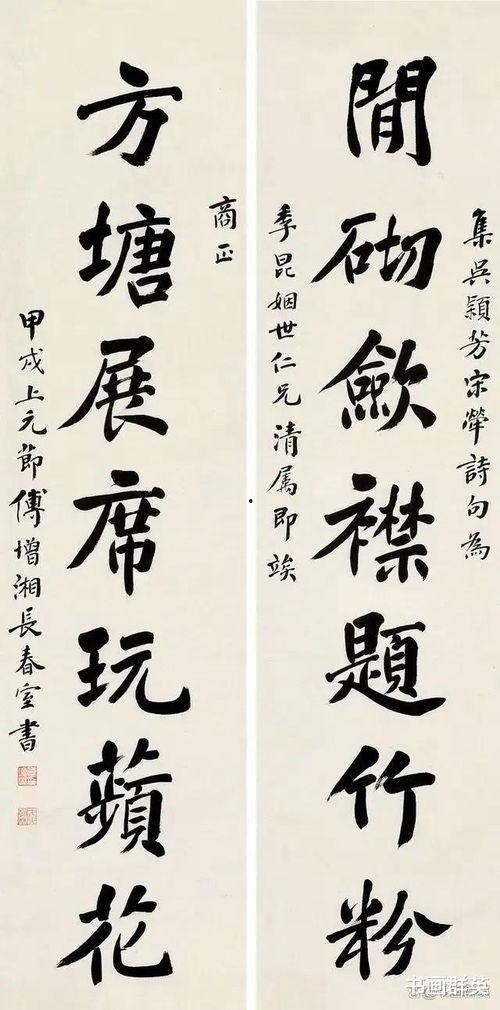 集吳穎芳宋犖詩句為
閒砌斂襟題竹粉
季昆姻世仁兄清屬即竢
商正
方塘展席玩蘋花
甲戌上元節傅增湘長春室書
书画群英